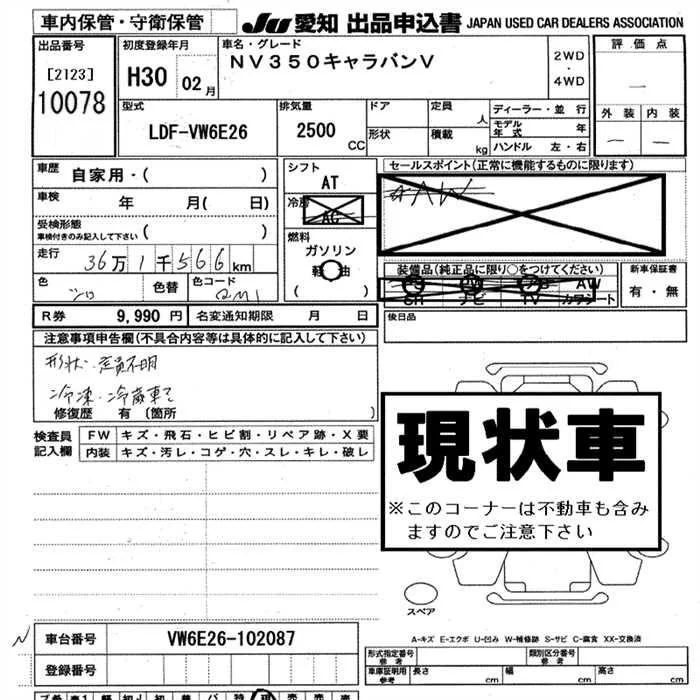 車内保管・守衛保管
JU 愛知 出品申込書 JAPAN USED CAR DEALERS ASSOCIATION
出品番号
[2123]
10078
初度登録年月
H30 02月
車名・グレード
NV350キャラバンV
2WD
・
4WD
評価点
外装 内装
型式
LDF-VW6E26
排気量
2500
CC
ドア
形状
定員
人
積載
kg
ディーラー・並行
モデル年式 年
ハンドル 左・右
車歴
自家用・( )
車検
年 月( 日)
受検形態
車検付きのみ記入して下さい ( )
走行
36万1千566km
色
シロ
色替
色コード
QM1
シフト
AT
冷房
AC
燃料
ガソリン
軽油
( )
セールスポイント(正常に機能するものに限ります)
AW
装備品(純正品に限り○をつけてください)
PS PW AB AW
SR ナビ TV カワシート
新車保証書
有・無
R券 9,990 円 名変通知期限 月 日
後日品
注意事項申告欄(不具合内容等は具体的に記入して下さい)
形状・定員不明
冷凍・冷蔵車
修復歴 有 〔箇所 〕
検査員
記入欄
FW キズ・飛石・ヒビ割・リペア跡・X要
内装 キズ・汚レ・コゲ・穴・スレ・キレ・破レ
現状車
※このコーナーは不動車も含み
ますのでご注意下さい
スペア
A-キズ E-エクボ U-凹み W-補修跡 S-サビ C-腐食 XX-交換済
N
車台番号 VW6E26-102087
登録番号
形式指定番号
参考
類別区分番号
参考
車庫証明用
参考
長さ cm 幅 cm 高さ cm